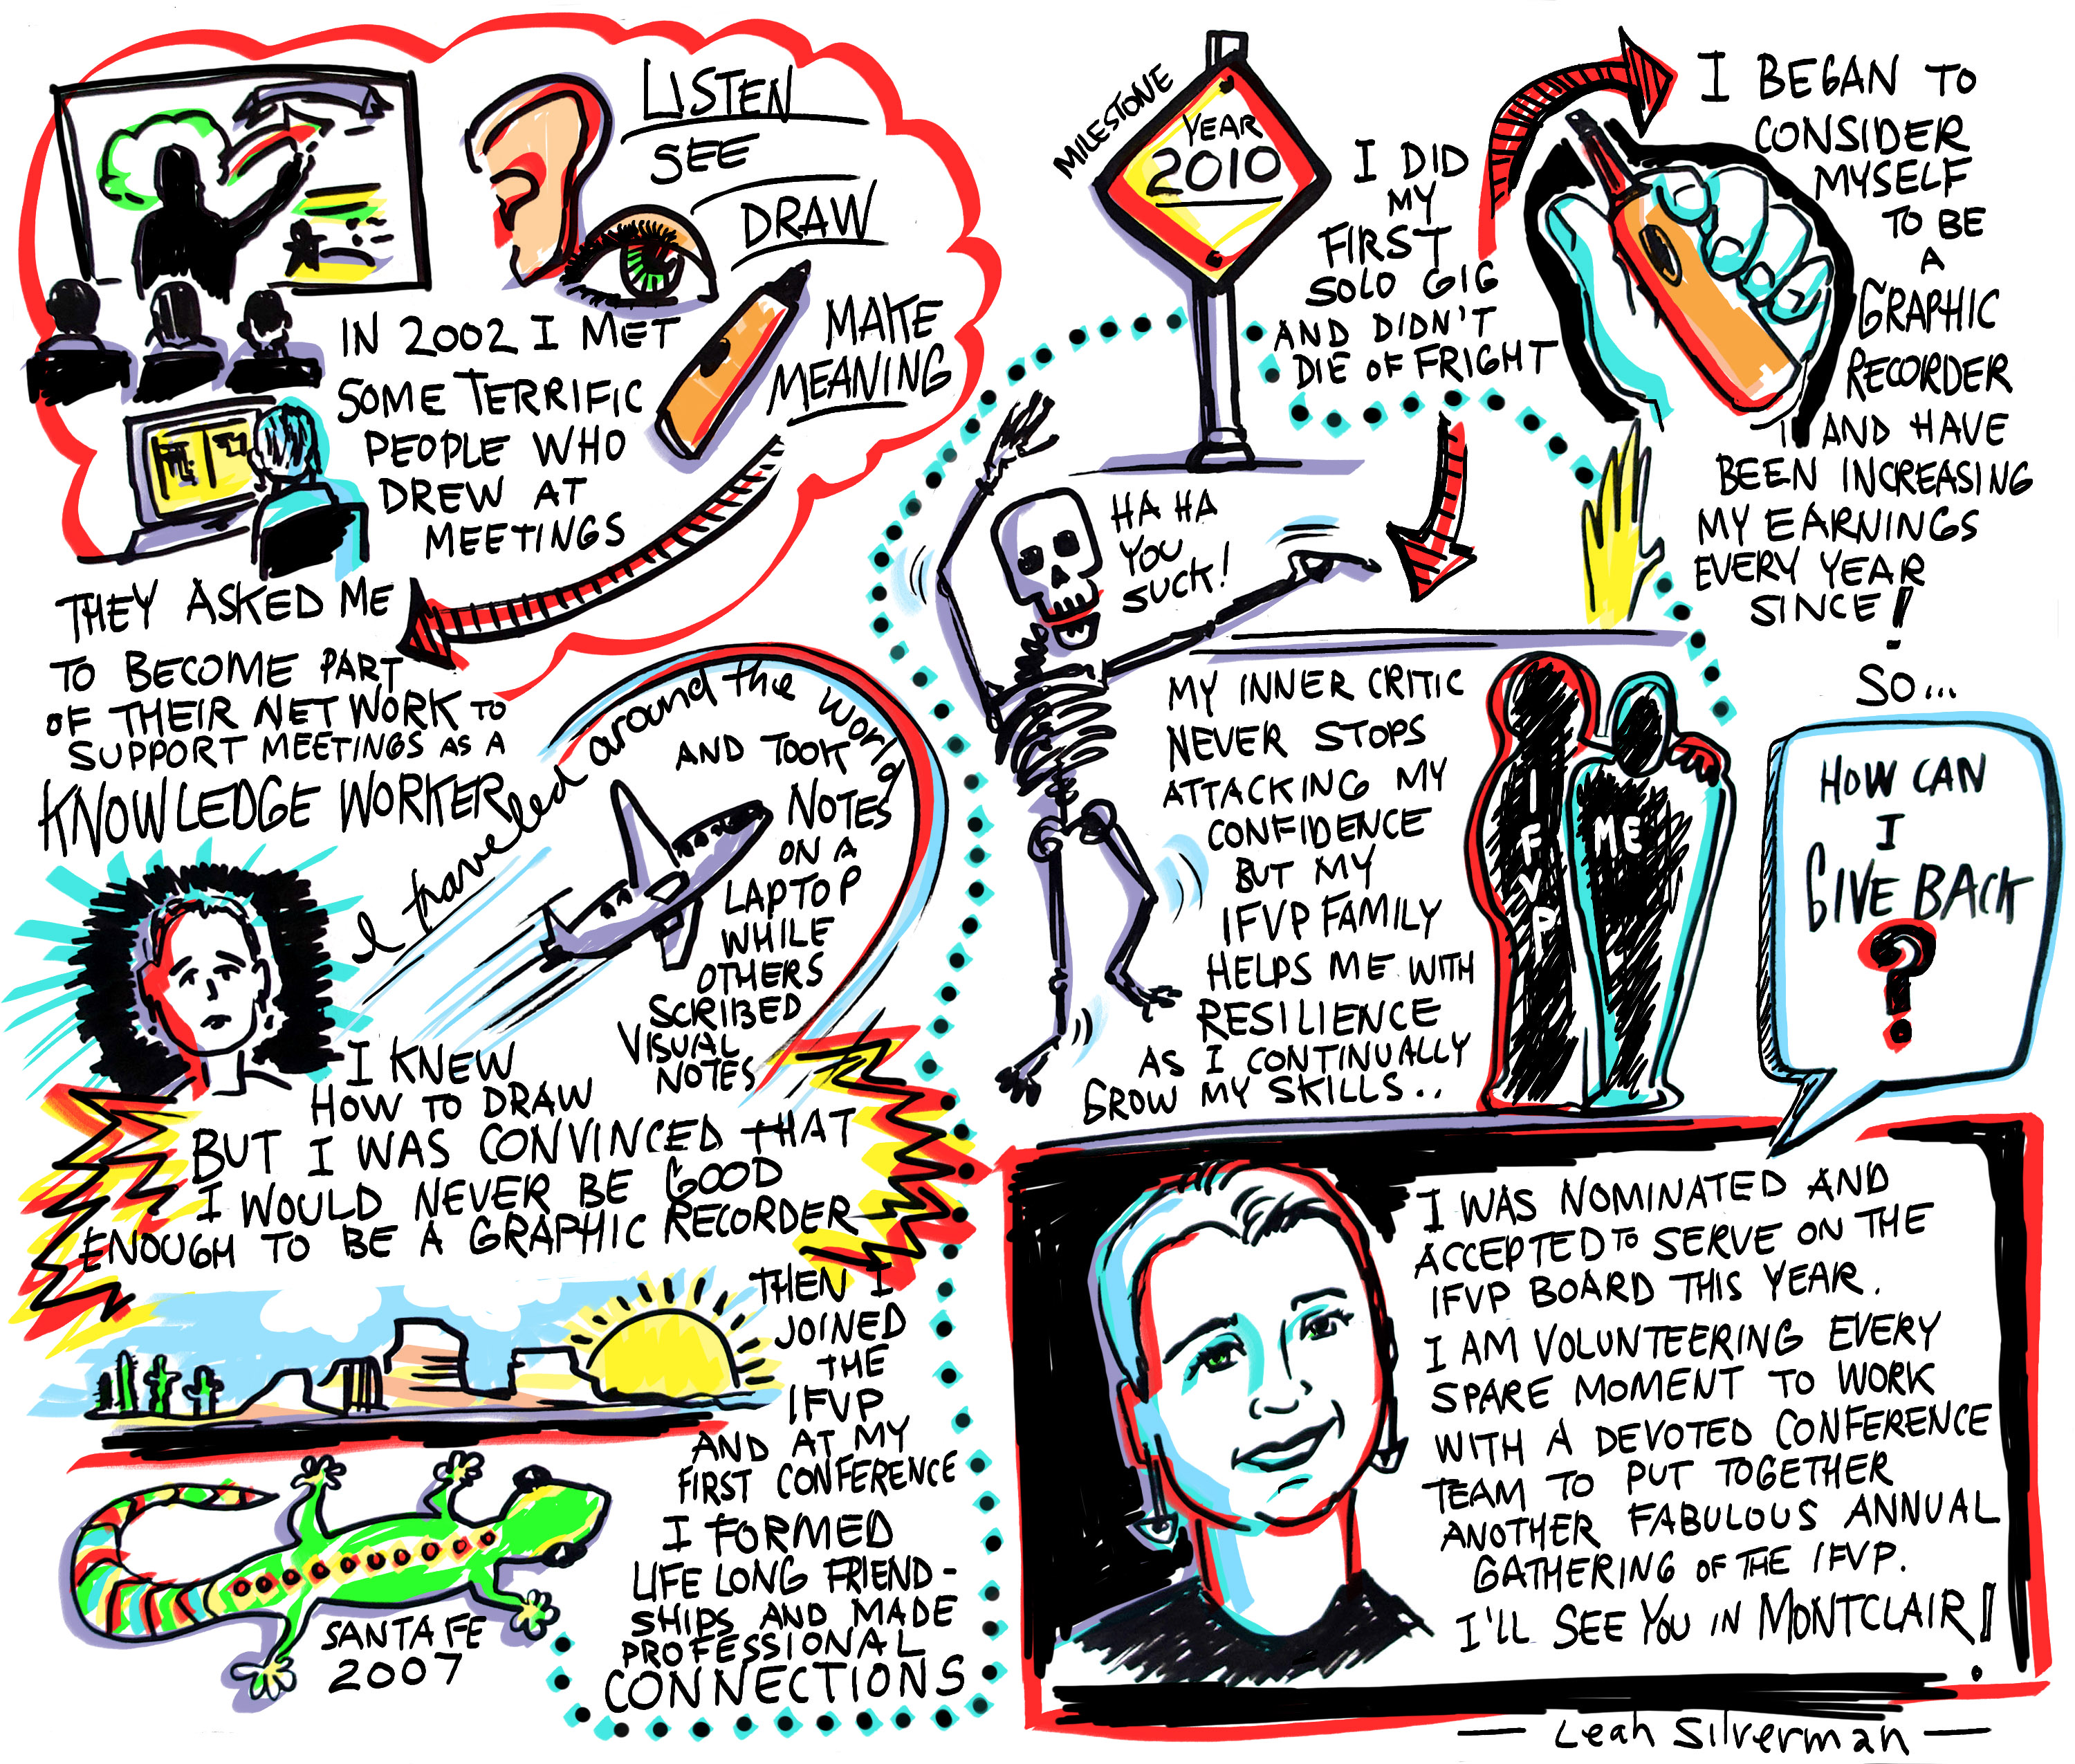 LISTEN
SEE
DRAW
MAKE
MEANING
IN 2002 I MET
SOME TERRIFIC
PEOPLE WHO
DREW AT
MEETINGS
THEY ASKED ME
TO BECOME PART
OF THEIR NETWORK TO
SUPPORT MEETINGS AS A
KNOWLEDGE WORKER
I traveled around the world
AND TOOK
NOTES
ON A
LAPTOP
WHILE
OTHERS
SCRIBED
VISUAL
NOTES
I KNEW
HOW TO DRAW
BUT I WAS CONVINCED THAT
I WOULD NEVER BE GOOD
ENOUGH TO BE A GRAPHIC RECORDER
THEN I
JOINED
THE
IFVP
AND AT MY
FIRST CONFERENCE
I FORMED
LIFE LONG FRIEND-
SHIPS AND MADE
PROFESSIONAL
CONNECTIONS
SANTA FE
2007
MILESTONE
YEAR
2010
I DID
MY
FIRST
SOLO GIG
AND DIDN'T
DIE OF FRIGHT
I BEGAN TO
CONSIDER
MYSELF
TO BE
A
GRAPHIC
RECORDER
AND HAVE
BEEN INCREASING
MY EARNINGS
EVERY YEAR
SINCE!
HA HA
YOU
SUCK!
MY INNER CRITIC
NEVER STOPS
ATTACKING MY
CONFIDENCE
BUT MY
IFVP FAMILY
HELPS ME WITH
RESILIENCE
AS I CONTINUALLY
GROW MY SKILLS..
IFVP
ME
SO...
HOW CAN
I
GIVE BACK
?
I WAS NOMINATED AND
ACCEPTED TO SERVE ON THE
IFVP BOARD THIS YEAR.
I AM VOLUNTEERING EVERY
SPARE MOMENT TO WORK
WITH A DEVOTED CONFERENCE
TEAM TO PUT TOGETHER
ANOTHER FABULOUS ANNUAL
GATHERING OF THE IFVP.
I'LL SEE YOU IN MONTCLAIR!
— Leah Silverman —